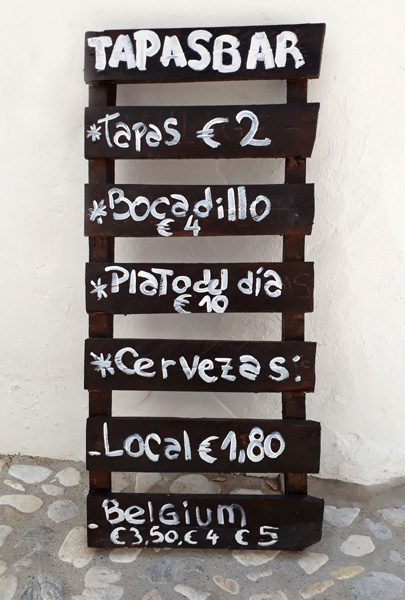 TAPASBAR
*Tapas €2
*Bocadillo
€4
*PLATO del día
€10
*Cervezas:
-Local €1,80
-BELGIUM
€3,50,€4 €5